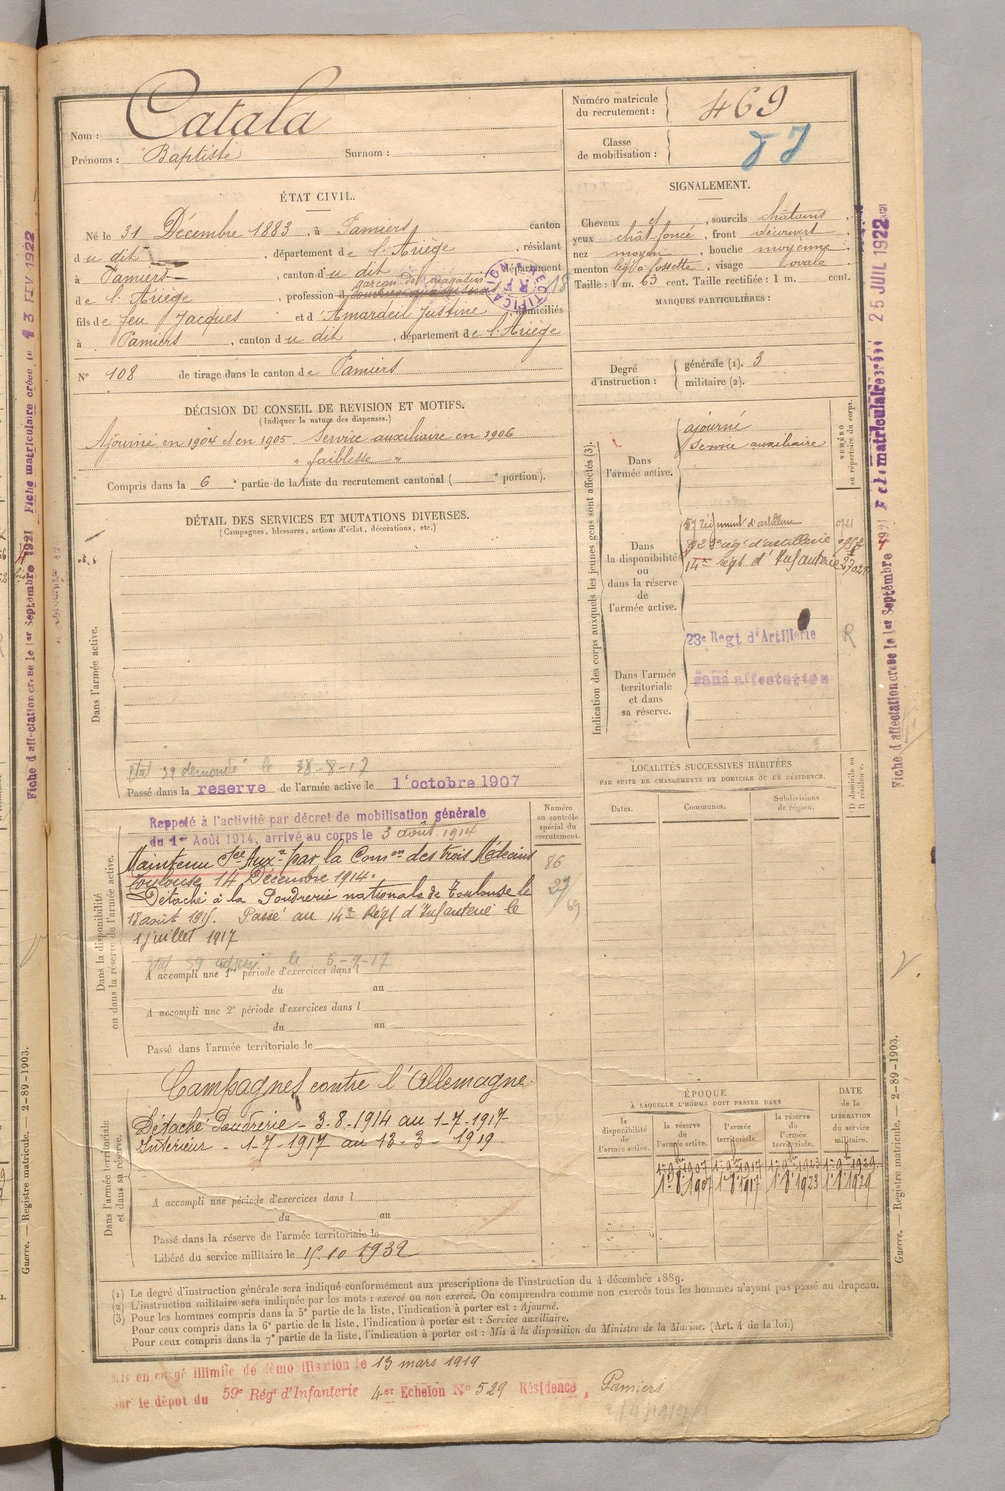 Nom : Catala
Prénoms : Baptiste Surnom :
Numéro matricule du recrutement : 469
Classe de mobilisation :
ÉTAT CIVIL.
Né le 31 Décembre 1883, à Pamiers, canton
du dit, département de l'Ariège, résidant
à Pamiers, canton du dit, département
de l'Ariège, profession d garçon de magasin
RECTIFICATION R F
fils de feu Jacques et d'Amardeil Justine domiciliés
à Pamiers, canton du dit, département de l'Ariège
N° 108 de tirage dans le canton de Pamiers
SIGNALEMENT.
Cheveux et, sourcils châtains
yeux chât foncé, front découvert
nez moyen, bouche moyenne
menton fossette, visage ovale
Taille : 1 m. 63 cent. Taille rectifiée : 1 m. cent.
MARQUES PARTICULIÈRES :
Degré d'instruction : générale (1). 3
militaire (2).
DÉCISION DU CONSEIL DE REVISION ET MOTIFS.
(Indiquer la nature des dispenses.)
Ajourné en 1904 et en 1905 - Service auxiliaire en 1906
" faiblesse "
Compris dans la 6e partie de la liste du recrutement cantonal ( e portion).
DÉTAIL DES SERVICES ET MUTATIONS DIVERSES.
(Campagnes, blessures, actions d'éclat, décorations, etc.)
Dans l'armée active.
état 39 demandé le 28-8-17
Passé dans la reserve de l'armée active le 1er octobre 1907
Indication des corps auxquels les jeunes gens sont affectés (3).
NUMÉRO au répertoire du corps.
Dans l'armée active.
ajourné
Service auxiliaire
Dans la disponibilité ou dans la réserve de l'armée active.
57 régiment d'artillerie
régt d'artillerie
14me régt d'Infanterie
23e Régt d'Artillerie
R
Dans l'armée territoriale et dans sa réserve.
sans affectation
Dans la disponibilité ou dans la réserve de l'armée active.
Rappelé à l'activité par décret de mobilisation générale
du 1er Août 1914, arrivé au corps le 3 août 1914
Maintenu Sce Auxre par la Comon des trois Médecins
Toulouse 14 Décembre 1914.
Détaché à la Poudrerie nationale de Toulouse le
18 août 1915. Passé au 14me Régt d'Infanterie le
1 juillet 1917
le 5-9-17
Numéro au contrôle spécial du recrutement.
86
27/69
A accompli une 1re période d'exercices dans l
du au
A accompli une 2e période d'exercices dans l
du au
Passé dans l'armée territoriale le
LOCALITÉS SUCCESSIVES HABITÉES
PAR SUITE DE CHANGEMENTS DE DOMICILE OU DE RÉSIDENCE.
Dates. Communes. Subdivisions de région. D domicile ou R résidence.
Dans l'armée territoriale et dans sa réserve.
Campagnes contre l'Allemagne.
Détaché Poudrerie - 3-8-1914 au 1-7-1917
Intérieur - 1-7-1917 au 13-3-1919
A accompli une période d'exercices dans l
du au
Passé dans la réserve de l'armée territoriale le
Libéré du service militaire le 15.10 1932
ÉPOQUE
À LAQUELLE L'HOMME DOIT PASSER DANS
la disponibilité de l'armée active. la réserve de l'armée active. l'armée territoriale. la réserve de l'armée territoriale. DATE de la LIBÉRATION du service militaire.
(1) Le degré d'instruction générale sera indiqué conformément aux prescriptions de l'instruction du 4 décembre 1889.
(2) L'instruction militaire sera indiquée par les mots : exercé ou non exercé. On comprendra comme non exercés tous les hommes n'ayant pas passé au drapeau.
(3) Pour les hommes compris dans la 5e partie de la liste, l'indication à porter est : Ajourné.
Pour ceux compris dans la 6e partie de la liste, l'indication à porter est : Service auxiliaire.
Pour ceux compris dans la 7e partie de la liste, l'indication à porter est : Mis à la disposition du Ministre de la Marine. (Art. 4 de la loi.)
Mis en congé illimité de démobilisation le 13 mars 1919
par le dépôt du 59e Régt d'Infanterie 4er Echelon N° 529 Résidence, Pamiers
Fiche d'affectation créée le 1er Septembre 1921
25 JUIL 1922
Guerre. — Registre matricule. — 2-89-1903.
Fiche d'affectation créée le 1er Septembre 1921 Fiche matriculaire créée le 13 FEV 1922
Guerre. — Registre matricule. — 2-89-1903.